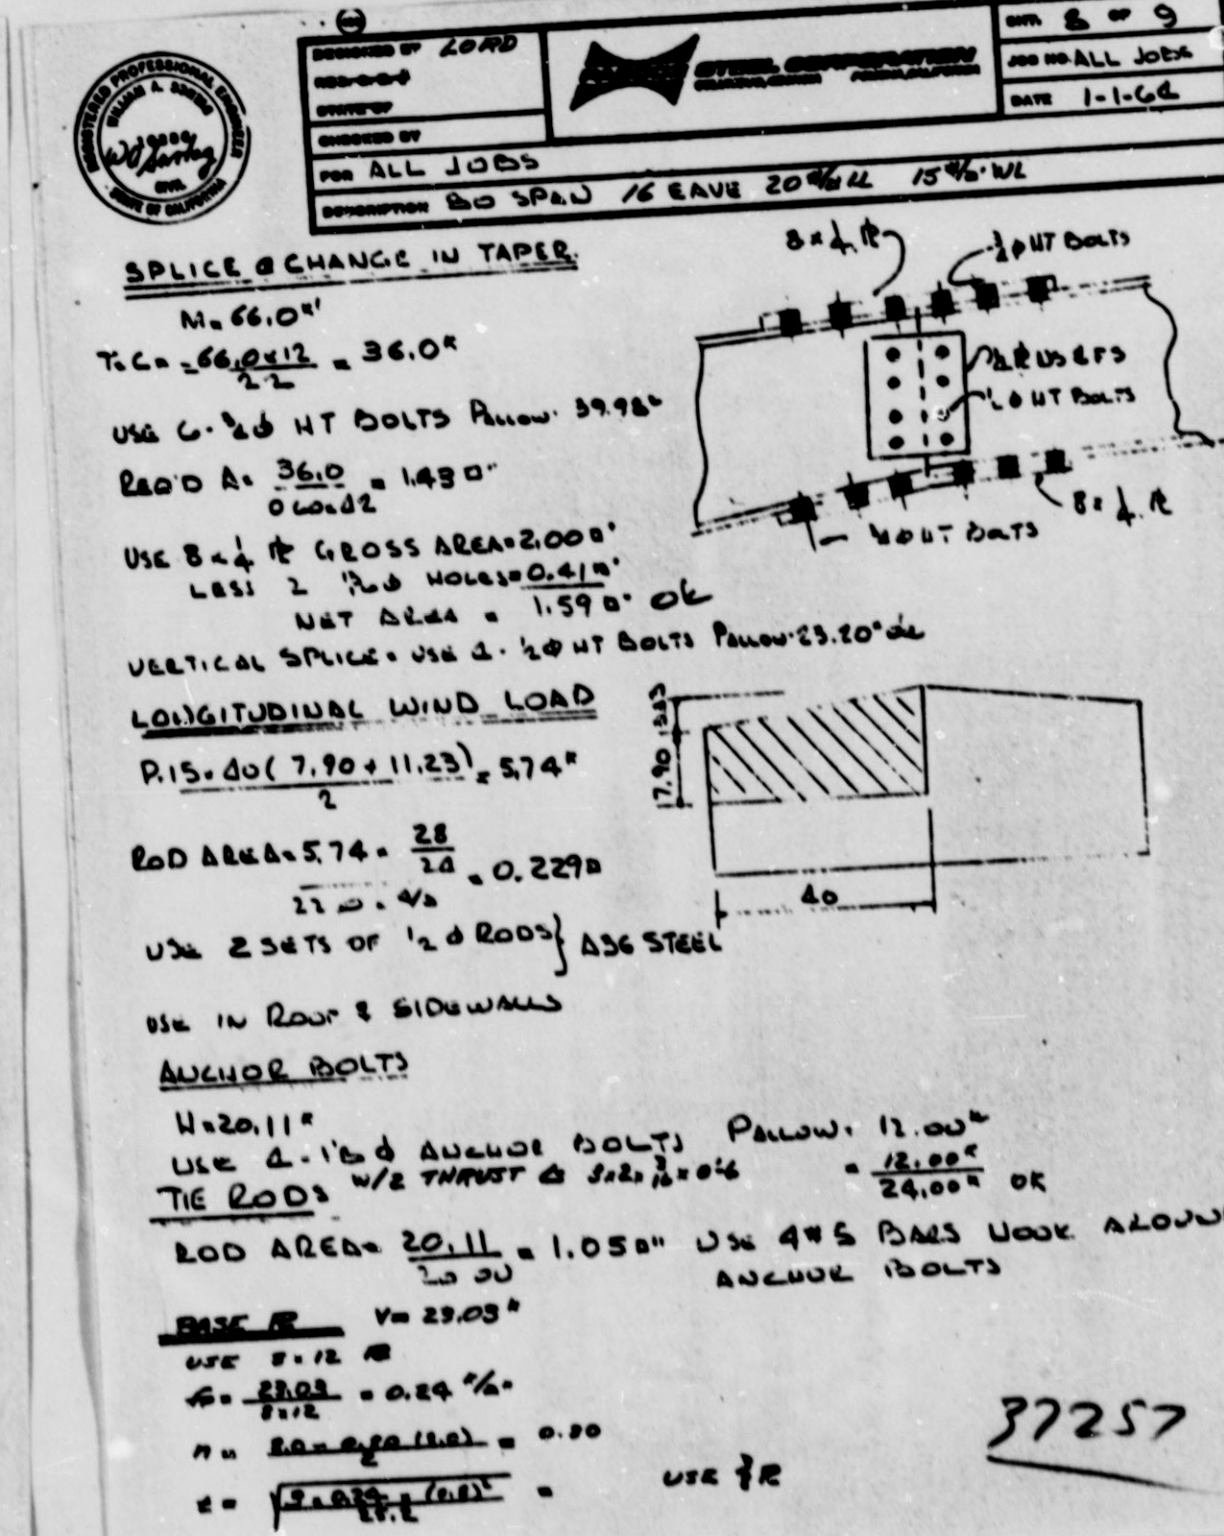 REGISTERED PROFESSIONAL ENGINEER
WILLIAM A.
CIVIL
STATE OF CALIFORNIA
DESIGNED BY LORD
CHECKED BY
STEEL CORPORATION
8 OF 9
JOB NO. ALL JOBS
DATE 1-1-62
FOR ALL JOBS
DESCRIPTION 80 SPAN 16 EAVE 20 #/□' LL 15 #/□' WL
SPLICE @ CHANGE IN TAPER
M= 66.0 K'
T=C= 66.0×12 / 22 = 36.0 K
USE 6-3/4 φ HT BOLTS P ALLOW = 39.98 K
REQ'D A= 36.0 / = 1.43 □"
USE 8×1/4 PL GROSS AREA=2.00 □"
LESS 2 φ HOLES=0.41 □"
NET AREA = 1.59 □" OK
VERTICAL SPLICE= USE 4-1/2 φ HT BOLTS P ALLOW=23.20 K OK
8×1/4 PL
3/4 φ HT BOLTS
PL NS & FS
1/2 φ HT BOLTS
8×1/4 PL
3/4 φ HT BOLTS
LONGITUDINAL WIND LOAD
P=15×40 ( 7.90 + 11.23 ) / 2 = 5.74 K
ROD AREA= 5.74 × 28 / 24 / 22.0 × 4/3 = 0.229 □
7.90
40
USE 2 SETS OF 1/2 φ RODS } A36 STEEL
USE IN ROOF & SIDEWALLS
ANCHOR BOLTS
H=20.11 K
USE 4- φ ANCHOR BOLTS P ALLOW= 12.00 K
W/2 THRUST ∠ 3×2×3/16×0'-6 = 12.00 K
24.00 K OK
TIE RODS
ROD AREA= 20.11 / 20.00 = 1.05 □" USE 4#5 BARS HOOK AROUND
ANCHOR BOLTS
BASE PL V= 23.03 K
USE 8×12 PL
= 23.03 / 8×12 = 0.24 K/□"
n = 8.0 - 0.80 (8.0) / 2 = 0.80
t = √ 3×0.24×(0.8)² / =
USE PL
37257